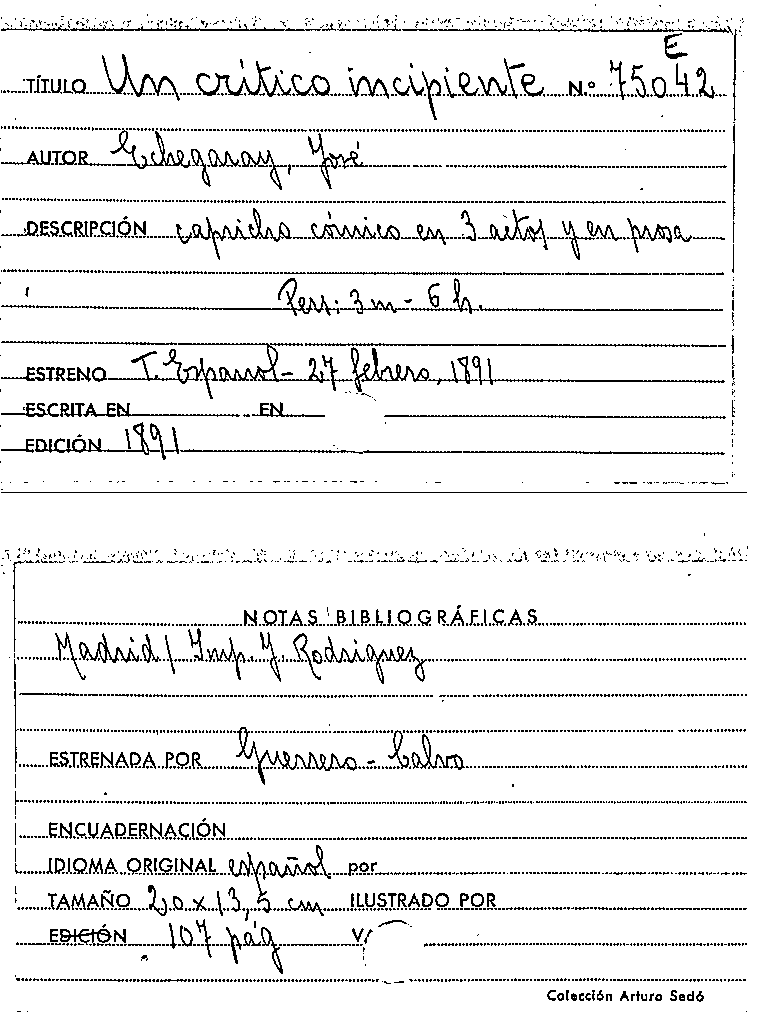 E
TÍTULO Un crítico incipiente N.º 75042
AUTOR Echegaray, José
DESCRIPCIÓN capricho cómico en 3 actos y en prosa
Pers: 3 m - 6 h.
ESTRENO T. Español - 27 febrero, 1891
ESCRITA EN EN
EDICIÓN 1891
NOTAS BIBLIOGRÁFICAS
Madrid / Imp. J. Rodriguez
ESTRENADA POR Guerrero - Calvo
ENCUADERNACIÓN
IDIOMA ORIGINAL español por
TAMAÑO 20 x 13,5 cm ILUSTRADO POR
EDICIÓN 107 pág V/
Colección Arturo Sedó